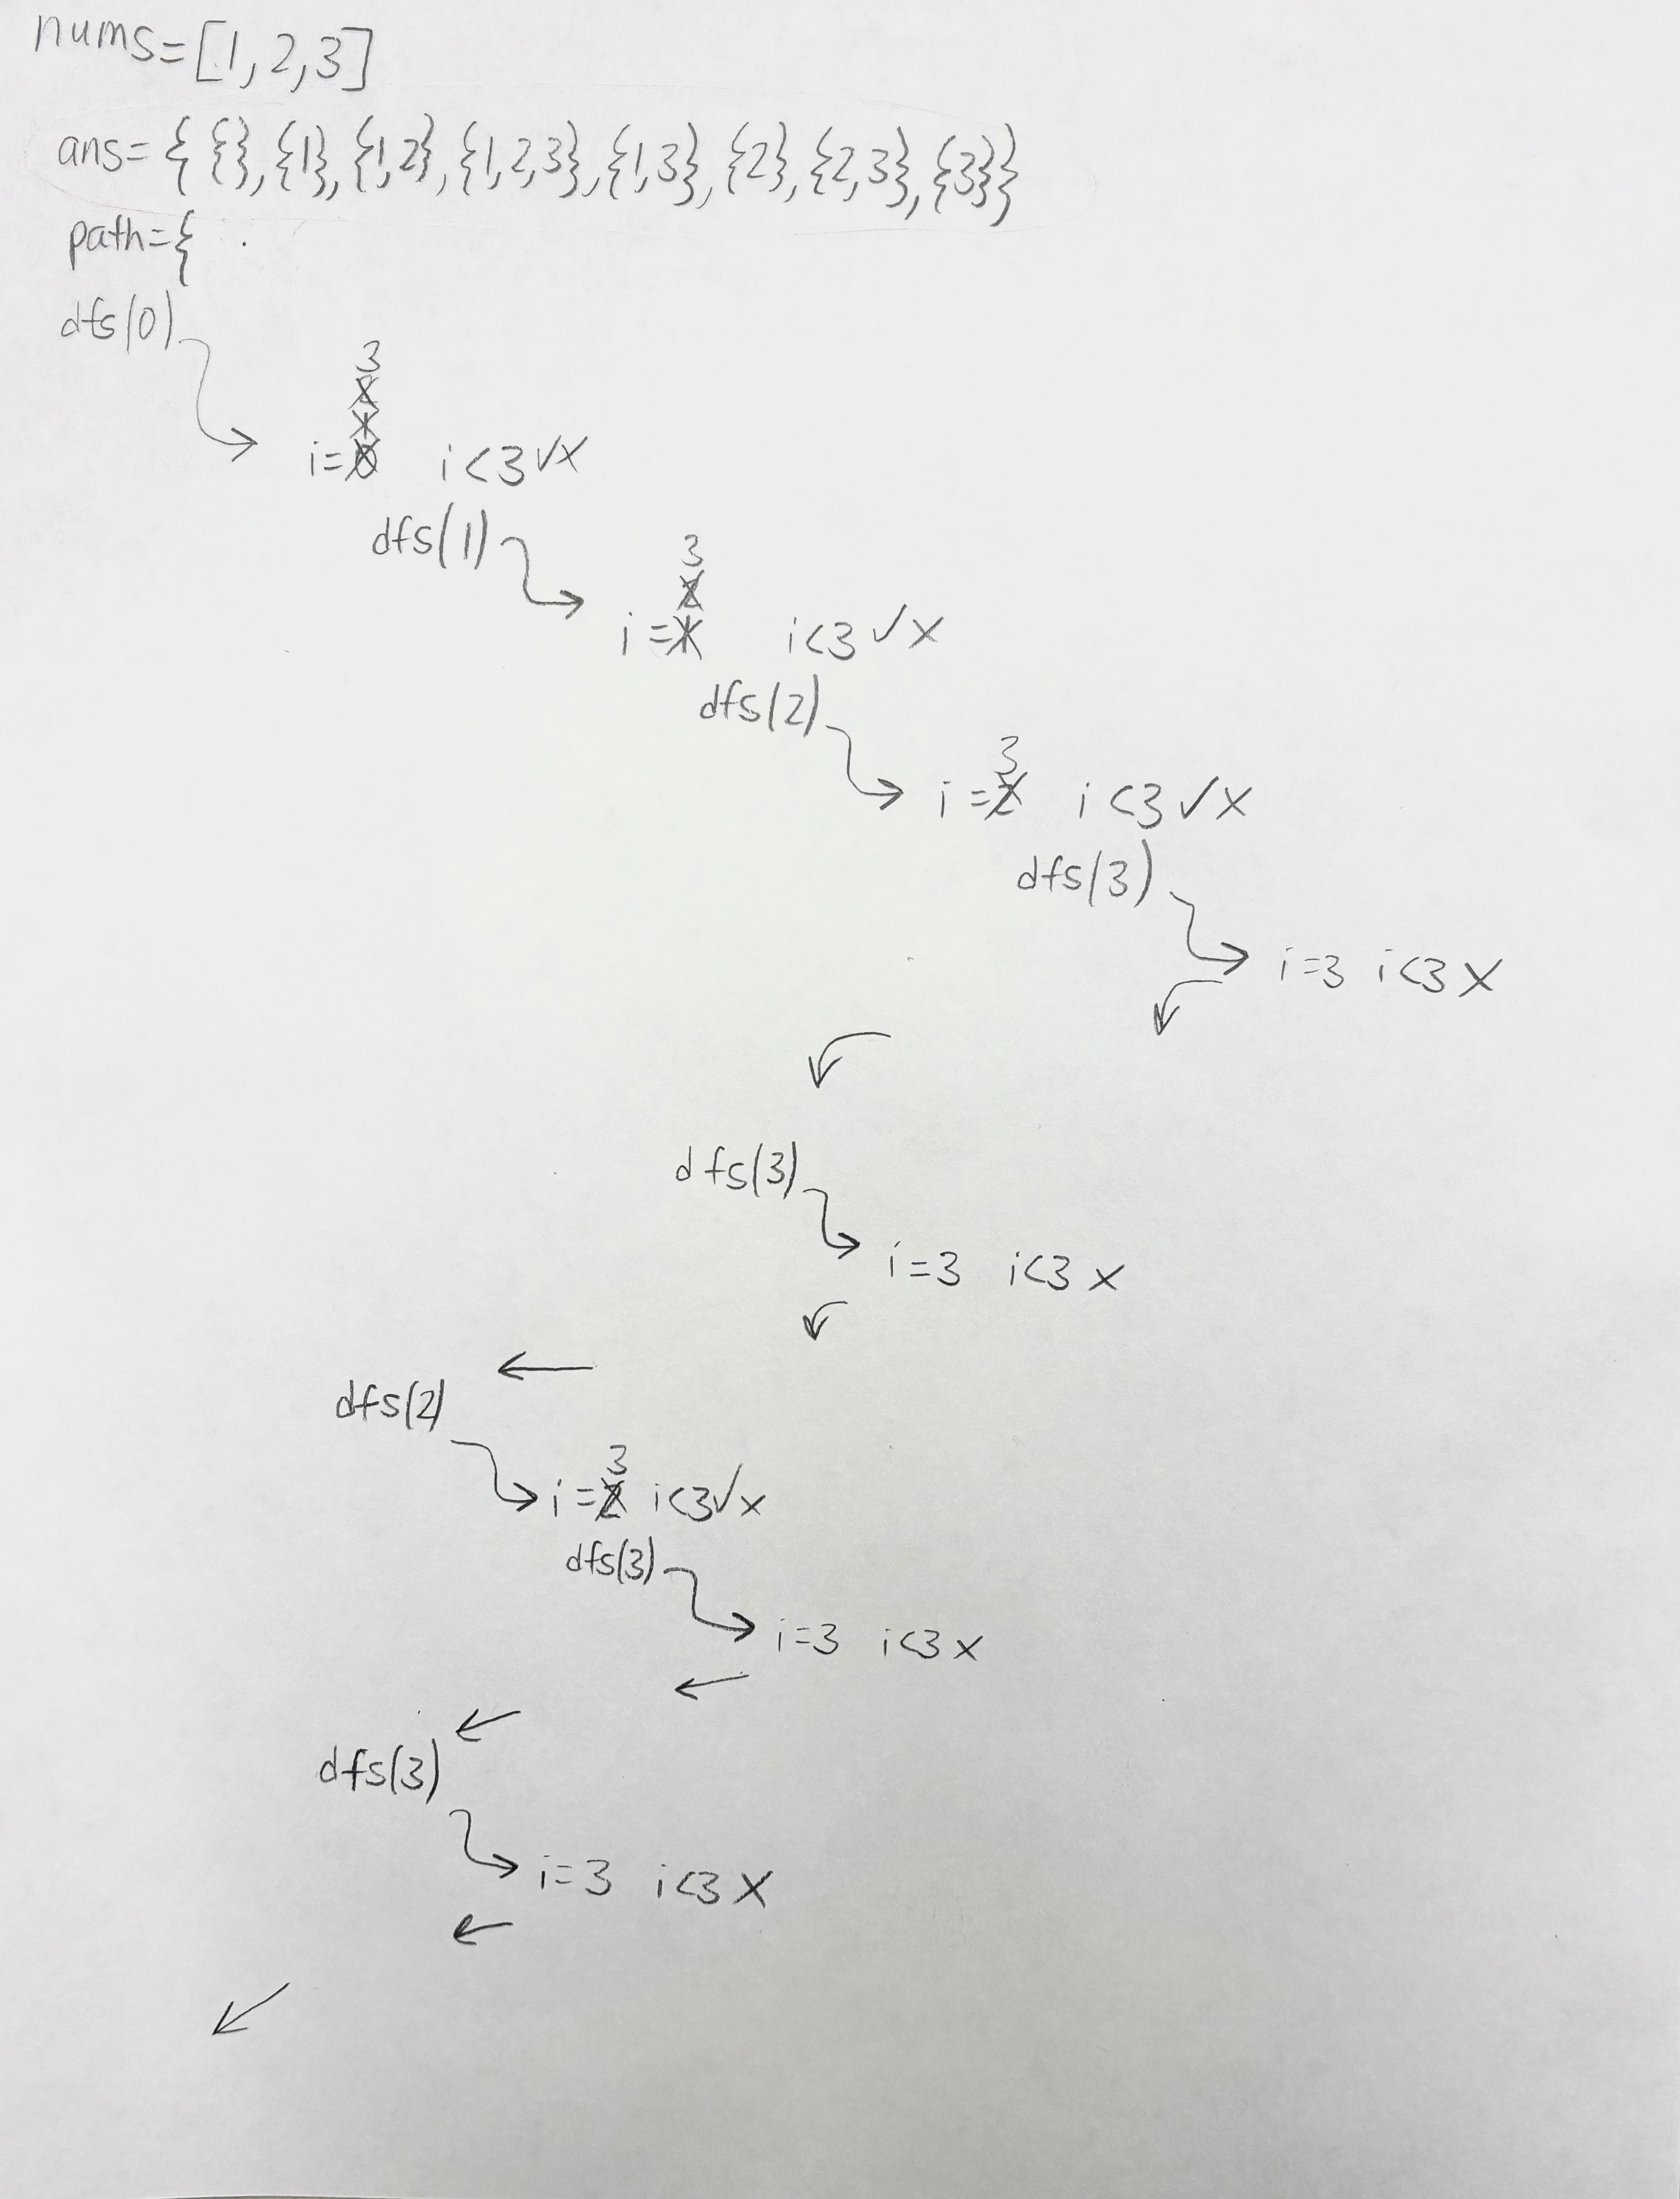 nums=[1,2,3]
ans={ {},{1},{1,2},{1,2,3},{1,3},{2},{2,3},{3}}
path={
dfs(0)
3
2
1
i=0 i<3 ✓ X
dfs(1)
3
2
i=1 i<3 ✓ X
dfs(2)
3
i=2 i<3 ✓ X
dfs(3)
i=3 i<3 X
dfs(3)
i=3 i<3 X
dfs(2)
3
i=2 i<3 ✓ X
dfs(3)
i=3 i<3 X
dfs(3)
i=3 i<3 X